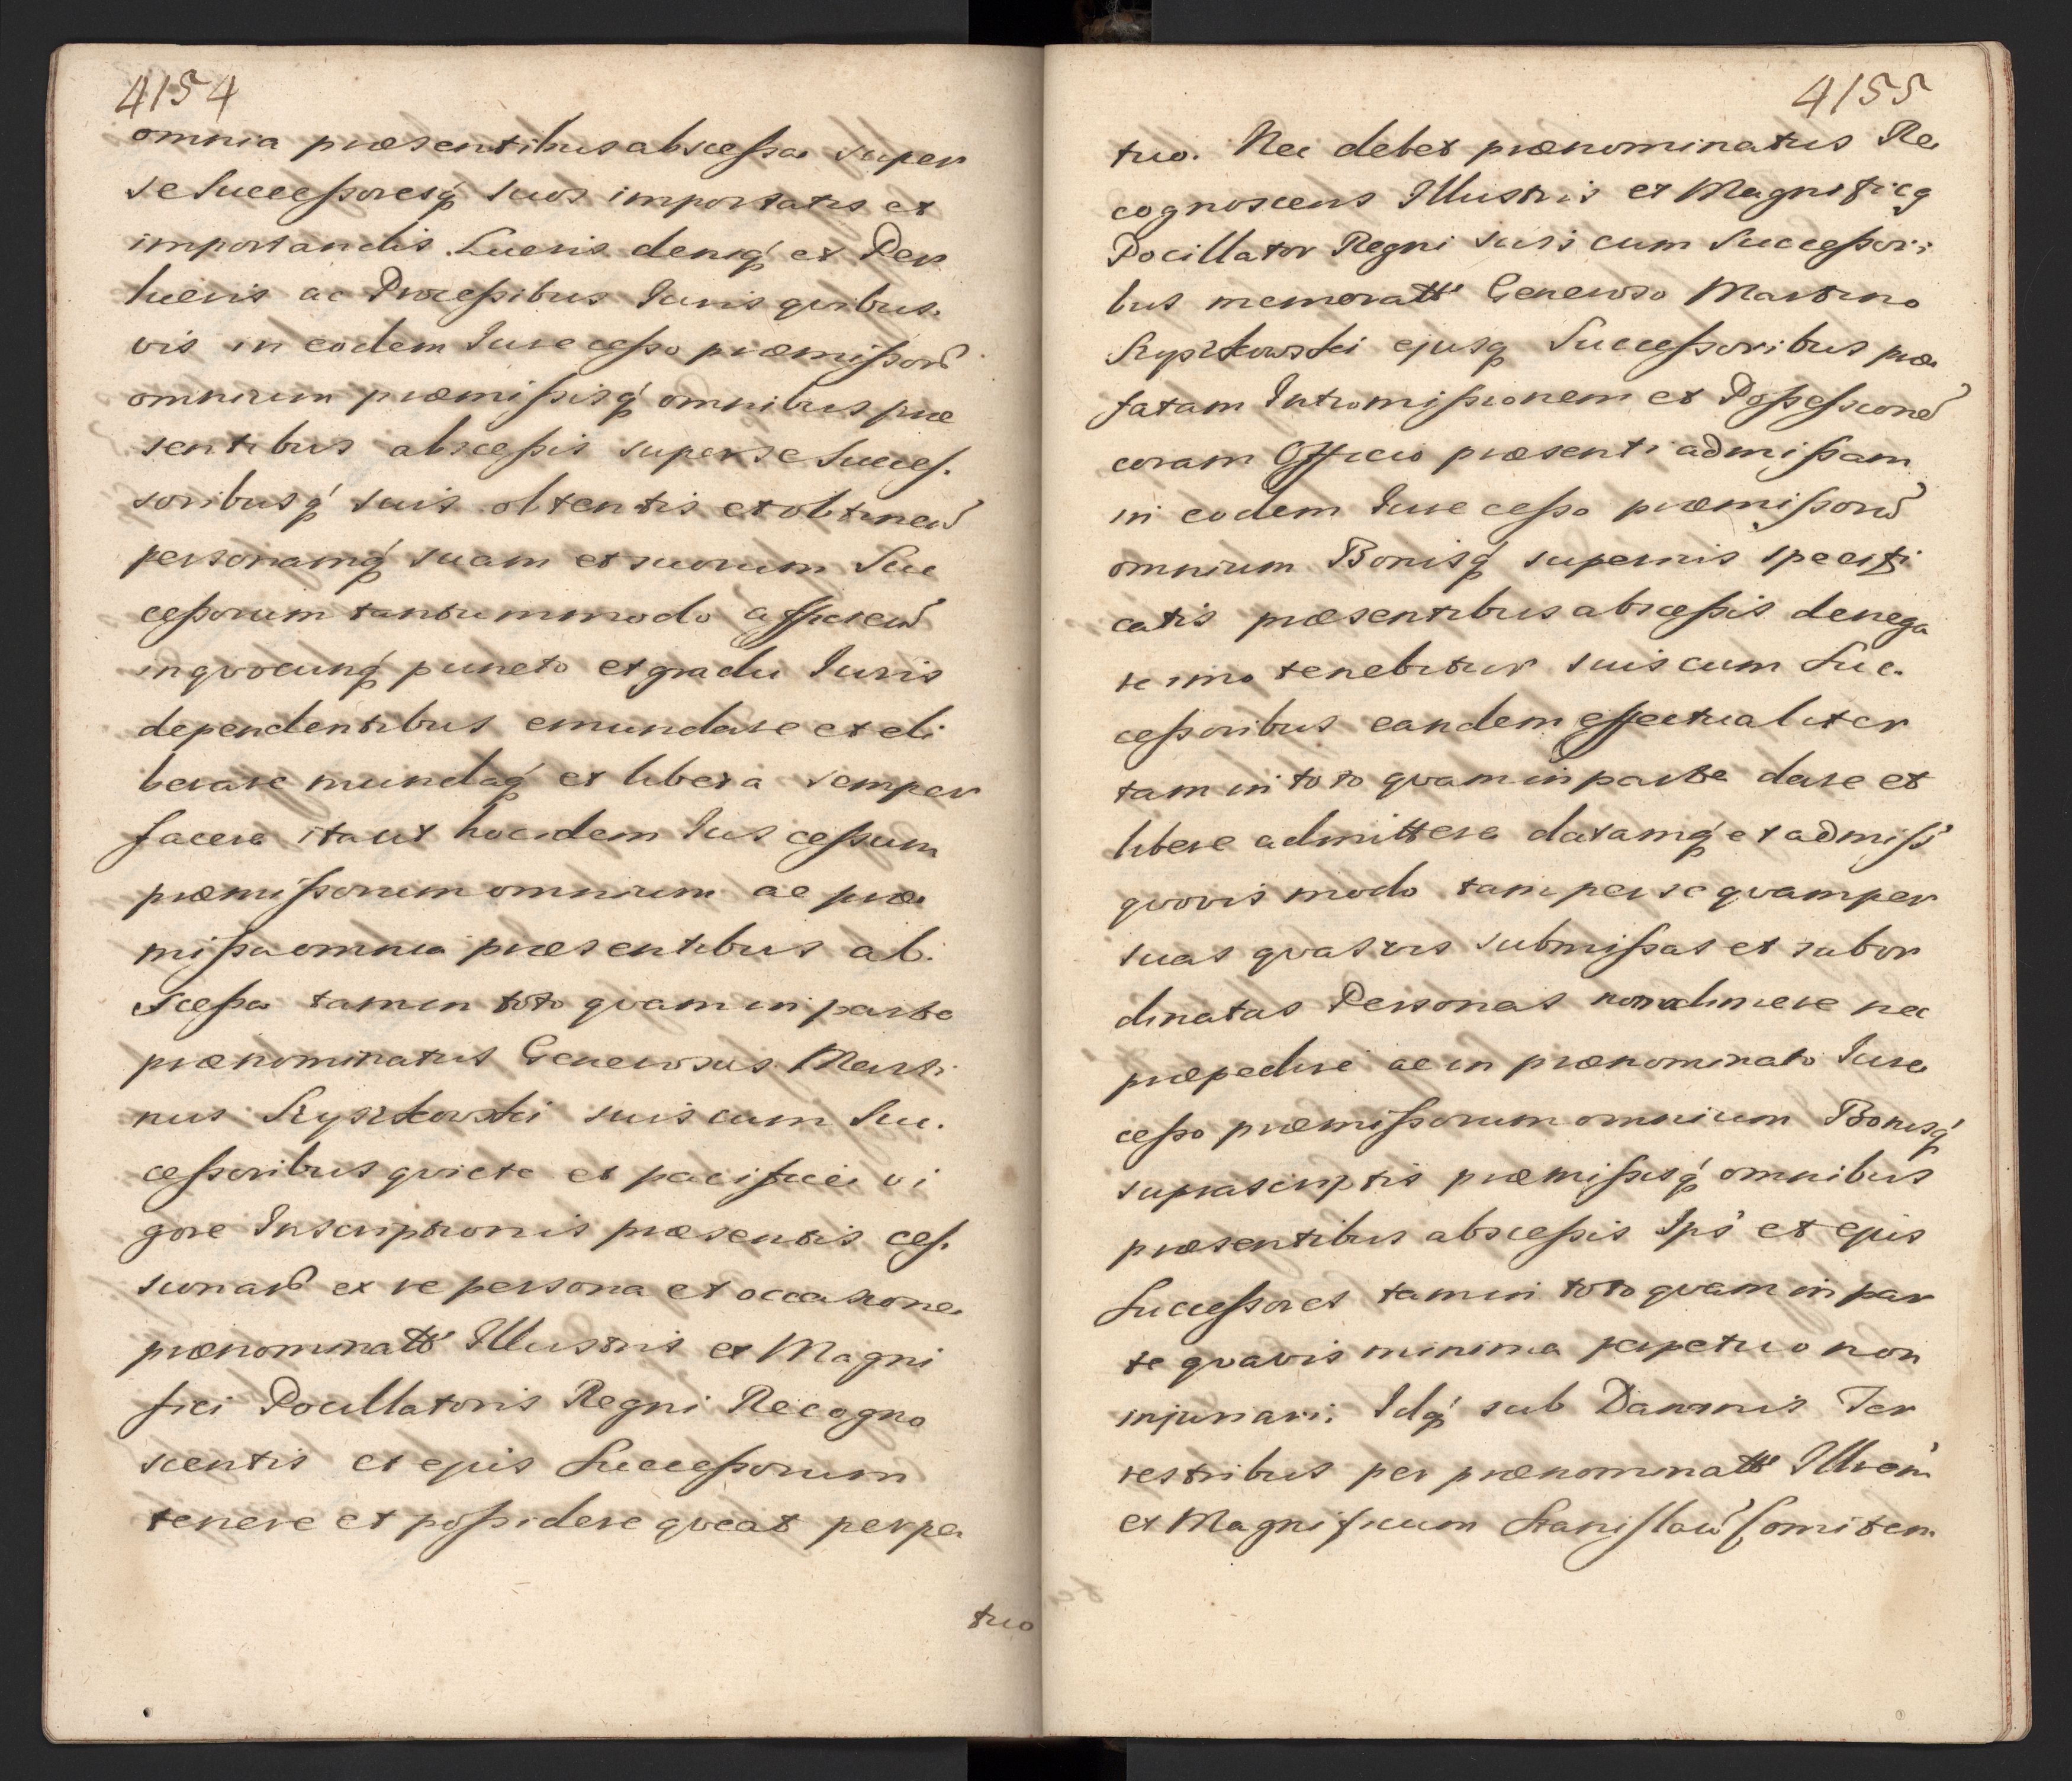 4154
omnia præsentibus abscessa super
se Successoresq́ suos importatis et
importandis. Lucris deniq́ et Per
lucris ac Processibus Iuris quibus.
vis in eodem Iure cesso præmissorũ
omnium præmissisq́ omnibus præ
sentibus abscessis super se Succes.
soribusq́ suis obtentis et obtineñ
personamq́ suam et suorum Suc
cessorum tantummodo afficieñ
in quocunq́ puncto et gradu Iuris
dependentibus emundare et eli
berare mundaq́ et libera semper
facere ita ut hoc idem Ius cessum
præmissorum omnium ac præ
missa omnia præsentibus ab.
scessa tam in toto quam in parte
prænominatus Generosus Marti
nus Szyszkowski suis cum Suc.
cessoribus quiete et pacifice vi
gore Inscriptionis præsentis ces.
sionarõ ex re persona et occasione
prænominatti Illustris et Magni
fici Pocillatoris Regni Recogno
scentis et ejus Successorum
tenere et possidere queat perpe
tuo
4155
tuo. Nec debet prænominatus Re
cognoscens Illustris et Magnificq
Pocillator Regni suis cum Successori
bus memoratt Generoso Martino
Szyszkowski ejusq Successoribus præ
fatam Intromissionem et Possessionẽ
coram Officio præsenti admissam
in eodem Iure cesso præmissorũ
omnium Bonisq́ supernis specifi
catis præsentibus abscessis denega
re imo tenebitur suis cum Suc.
cessoribus eandem effectualiter
tam in toto quam in parte dare et
libere admittere datamq́ et admiss
quovis modo tam per se quam per
suas quasvis submissas et subor
dinatas Personas non adimere nec
præpedire ac in prænominato Iure
cesso præmissorum omnium Bonisq́
suprascriptis præmissisq́ omnibus
præsentibus abscessis Ips et ejus
Successores tam in toto quam in par
te quavis minima perpetuo non
injuriari. Idq́ sub Damnis Ter
restribus per prænominatt Illrem
et Magnificum Stanislaũ Comitem